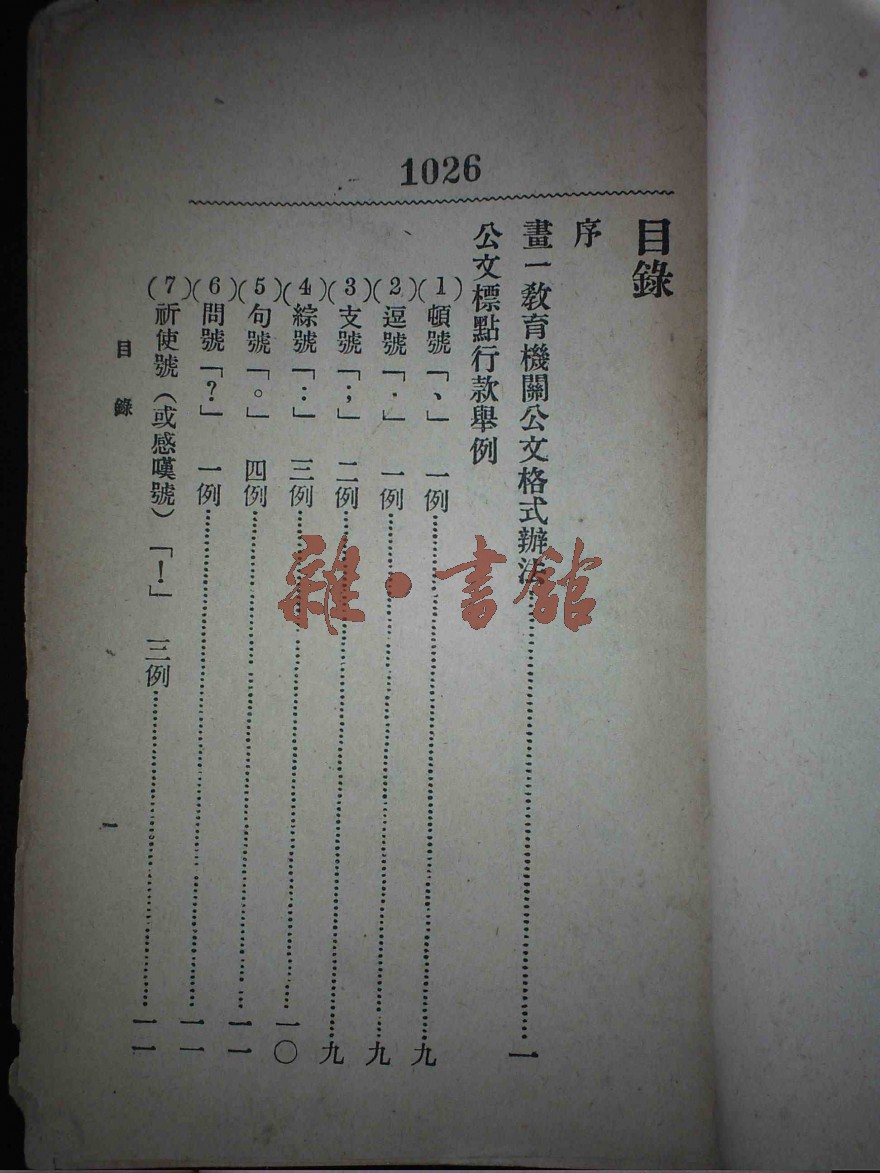 1026
目錄
序
畫一教育機關公文格式辦法……一
公文標點行款舉例
(1)頓號「、」 一例……九
(2)逗號「．」 一例……九
(3)支號「；」 二例……九
(4)綜號「：」 三例……一〇
(5)句號「。」 四例……一一
(6)問號「？」 一例……一一
(7)祈使號（或感嘆號）「！」 三例……一一
目錄
一
雜·書館